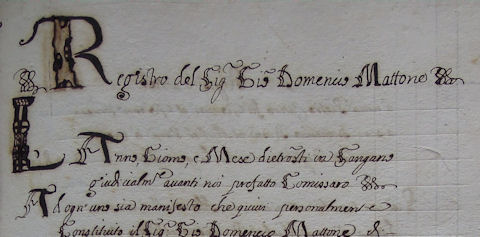 Registro del Sig.r Gio Domenico Mattone
L'Anno, Giorno, e Mese dietrostti in Gangano
giudicialm.e avanti noi prefatto Comissaro
Ad ogn'uno sia manifesto che quivi personalmente
Constituito il Sig.r Gio Domenico Mattone di